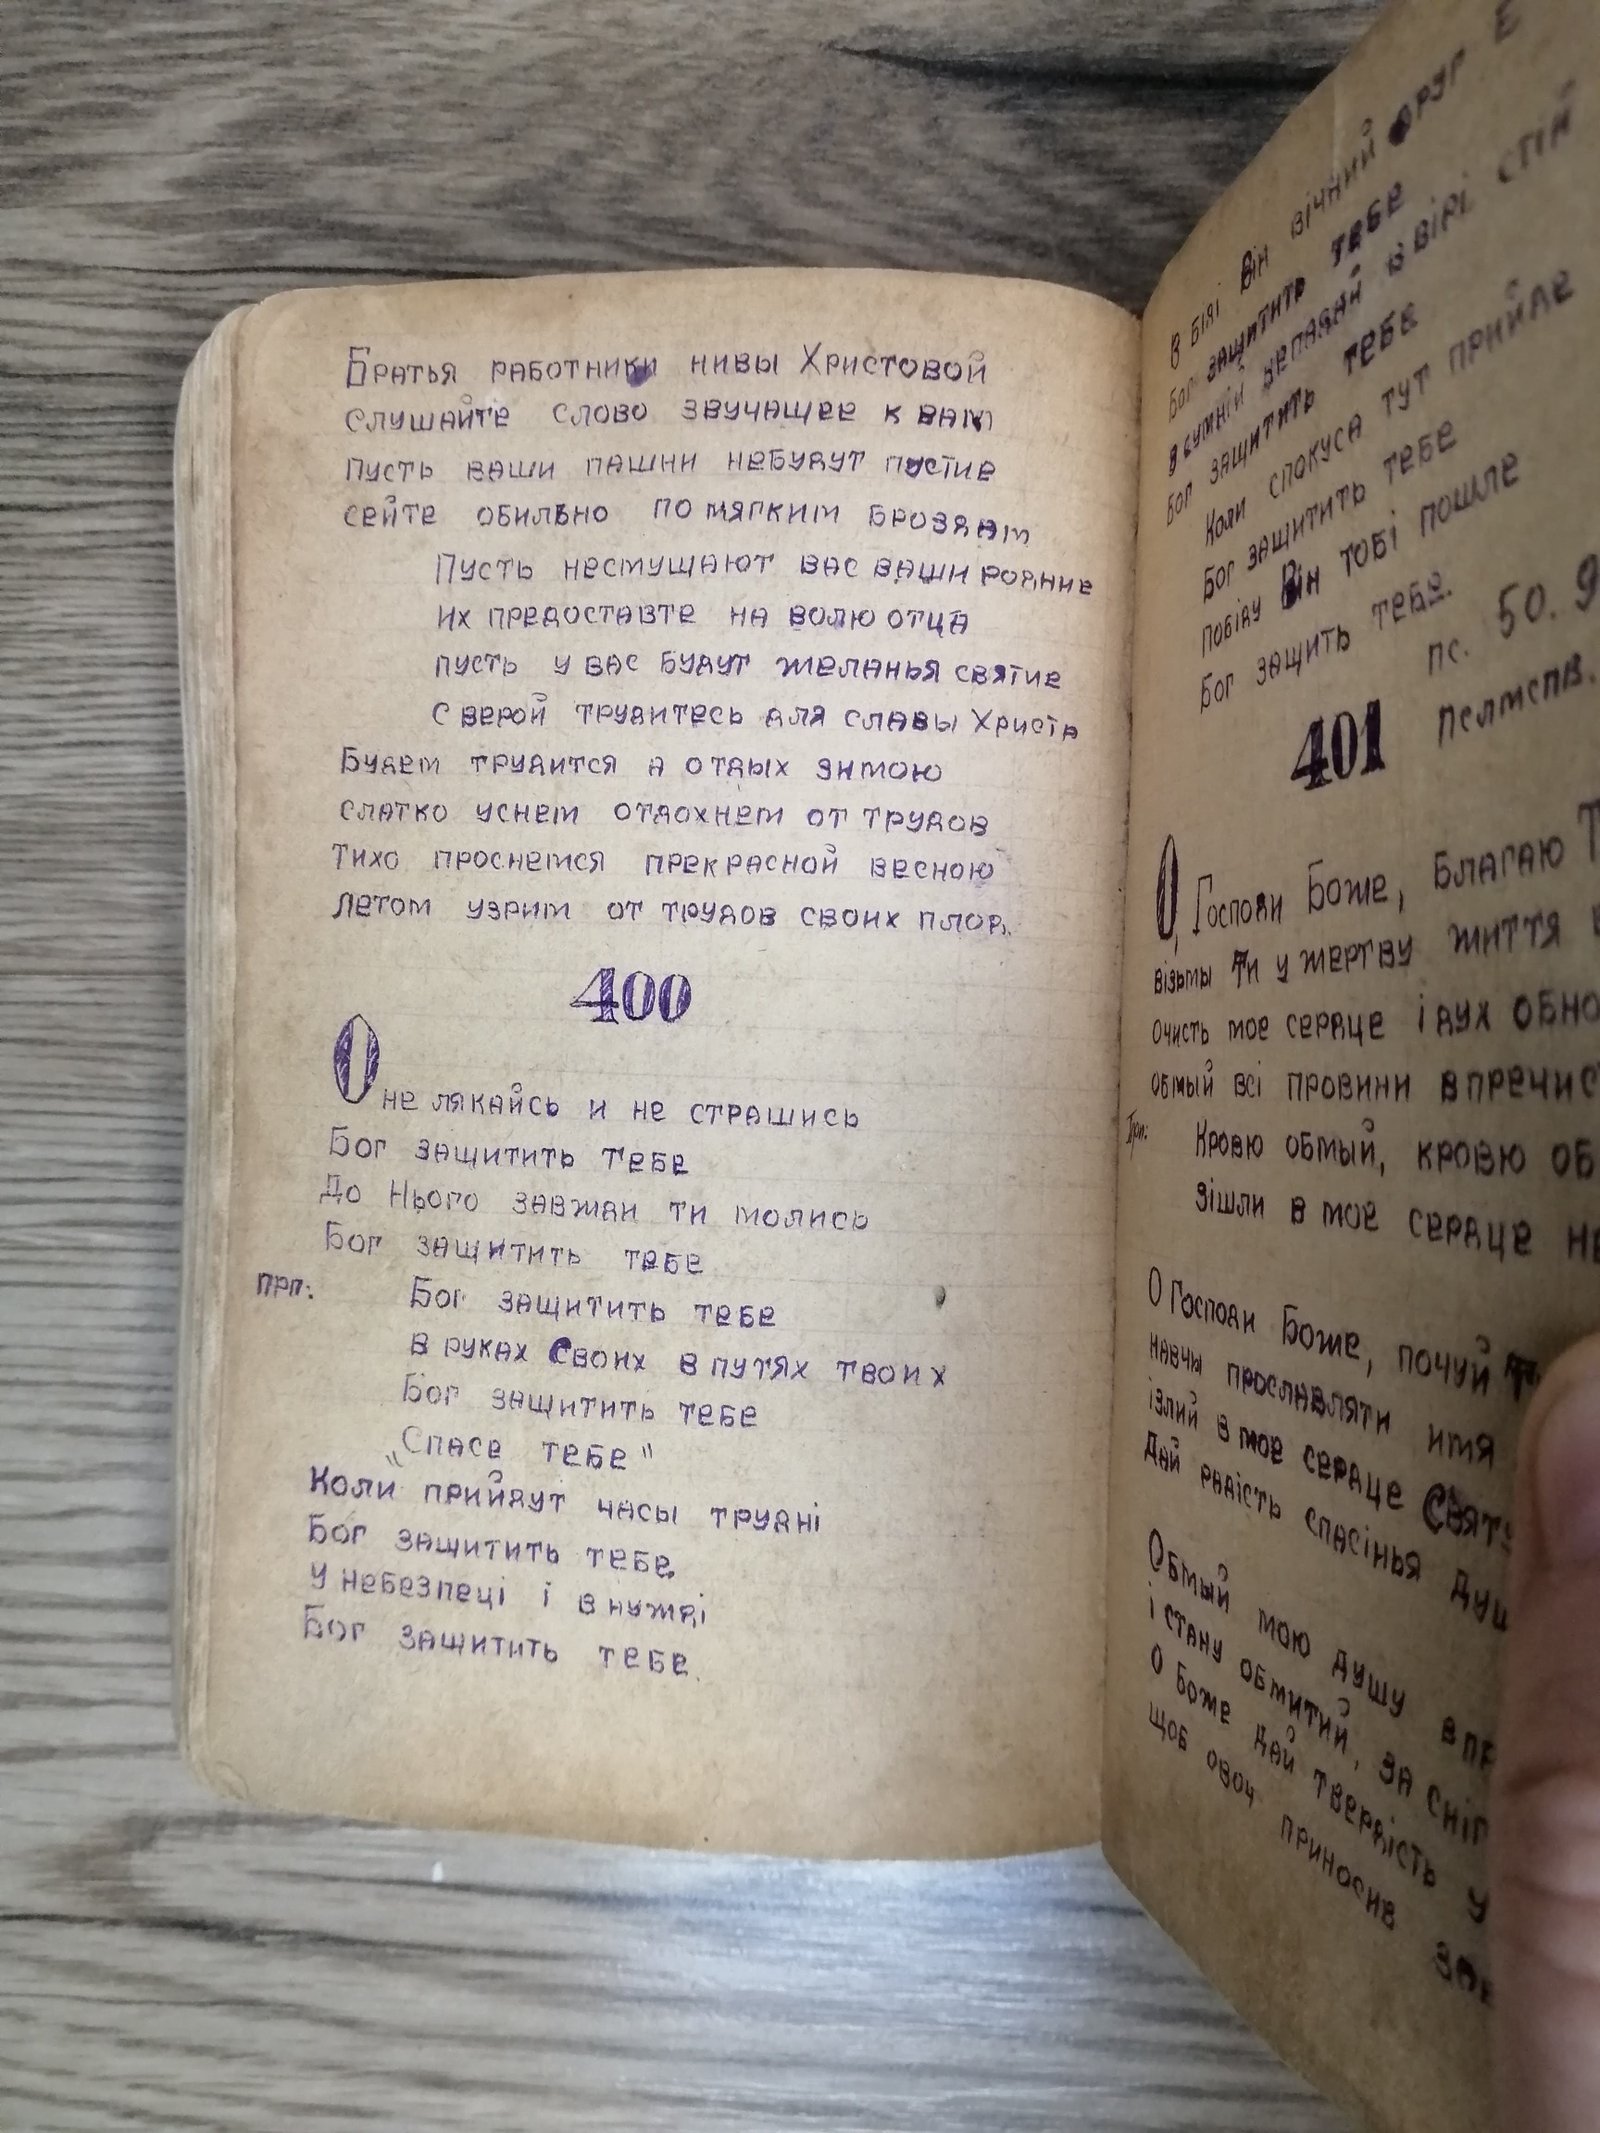 Братья работники нивы Христовой
слушайте слово звучащее к вам
пусть ваши пашни небудут пустие
сейте обильно по мягким броздам
Пусть несмущают вас ваши родние
их предоставте на волю отца
пусть у вас будут желанья святие
с верой трудитесь для славы Христа
Будем трудится а отдых зимою
слатко уснем отдохнем от трудов
тихо проснемся прекрасной весною
летом узрим от трудов своих плод.
400
О не лякайсь и не страшись
Бог защитить тебе
До Нього завжди ти молись
Бог защитить тебе
прп: Бог защитить тебе
в руках Своих в путях твоих
Бог защитить тебе
"Спасе тебе"
Коли прийдут часы трудні
Бог защитить тебе.
у небезпеці і в нужді
Бог защитить тебе.
В біді Він вічний друг Є
Бог защитить тебе
в сумній непадай в вірі стій
Бог защитить тебе
Коли спокуса тут прийде
Бог защитить тебе
победу Він тобі пошле
Бог защить тебе.
пс. 50. 9
401
О, Господи Боже, благаю
візьмы Ти у жертву життя
очисть мое сердце і дух
обмый всі провини
Прп: Кровю обмый, кровю
зішли в мое сердце
О Господи Боже, почуй
навчы прославляти имя
ізлий в мое сердце
Дай радість спасінья
Обмый мою душу
і стану обмитий, за
О Боже дай твердість у
щоб овоч приносив